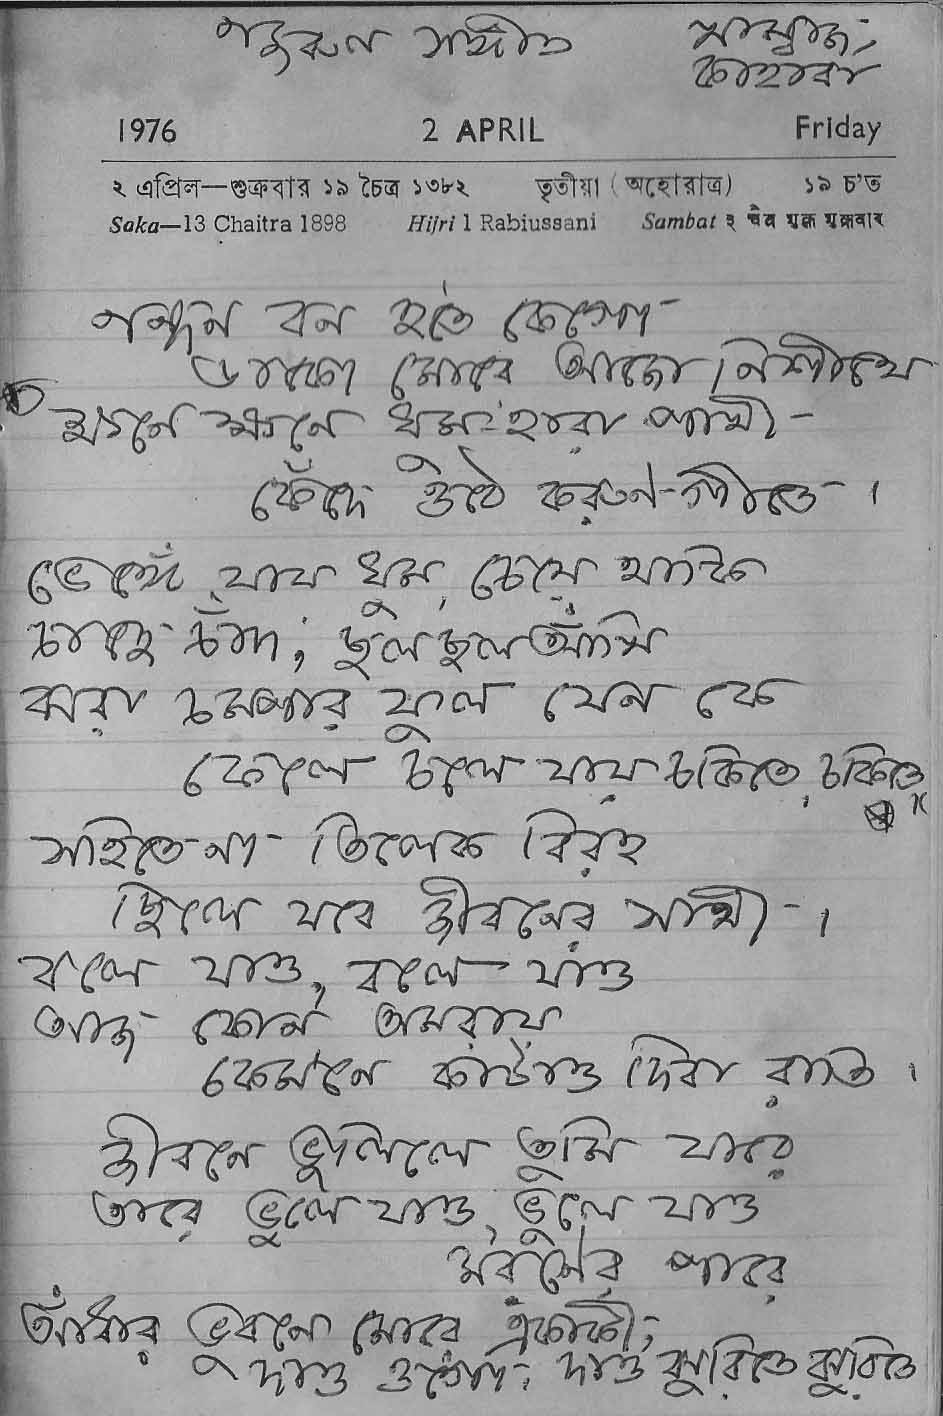 নজরুল সঙ্গীত
খাম্বাজ,
কাহারবা
1976 2 APRIL Friday
২ এপ্রিল—শুক্রবার ১৯ চৈত্র ১৩৮২ তৃতীয়া (অহোরাত্র) ১৯ চ'ত
Saka—13 Chaitra 1898 Hijri 1 Rabiussani Sambat ३ चैत्र शुक्ल शुक्रवार
নন্দন বন হতে কেগো
ডাকো মোরে আধো নিশীথে
ক্ষণে ক্ষণে ঘুম-হারা পাখী-
কেঁদে ওঠে করুণ-গীতে ।
ভেঙ্গে যায় ঘুম, চেয়ে থাকি
চাহে চাঁদ, ছলছল আঁখি
ঝরা চম্পার ফুল যেন কে
ফেলে চলে যায় চকিতে, চকিতে
সহিতে না তিলেক বিরহ
ছিলে যবে জীবনের সাথী- ।
বলে যাও, বলে যাও
আজ কোন অমরায়
কেমনে কাটাও দিবা রাতি ।
জীবনে ভুলিলে তুমি যারে
তারে ভুলে যাও, ভুলে যাও
মরণের পারে
আঁধার ভুবনে মোরে একাকী,
দাও ওগো, দাও ঝুরিতে ঝুরিতে